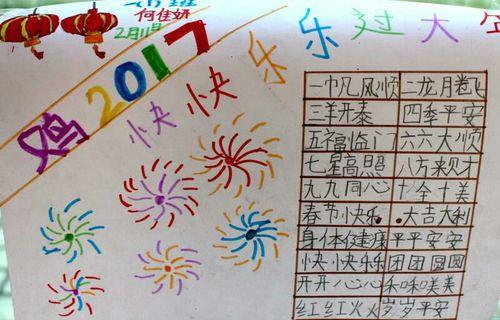 何佳妍
2月11日
鸡2017
快快乐乐过大年
一帆风顺 二龙腾飞
三羊开泰 四季平安
五福临门 六六大顺
七星高照 八方来财
九九同心 十全十美
春节快乐 大吉大利
身体健康 平平安安
快快乐乐 团团圆圆
开开心心 和和美美
红红火火 岁岁平安